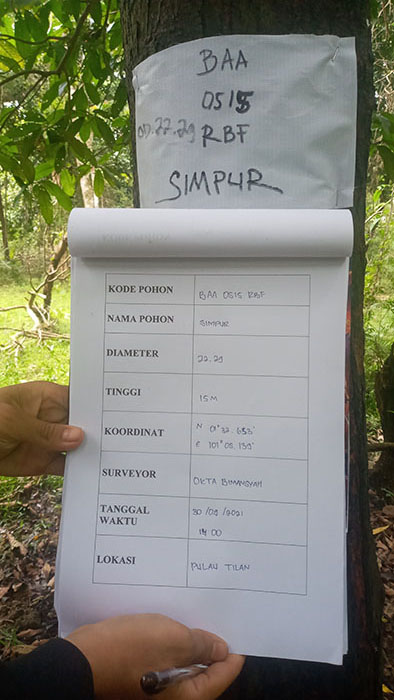 BAA
0515
RBF
SIMPUR
KODE POHON BAA 0515 RBF
NAMA POHON SIMPUR
DIAMETER 22.29
TINGGI 15 M
KOORDINAT N 01°32.
E 101°05.
SURVEYOR OKTA
TANGGAL 30/09/2021
WAKTU 14 00
LOKASI PULAU TILAN